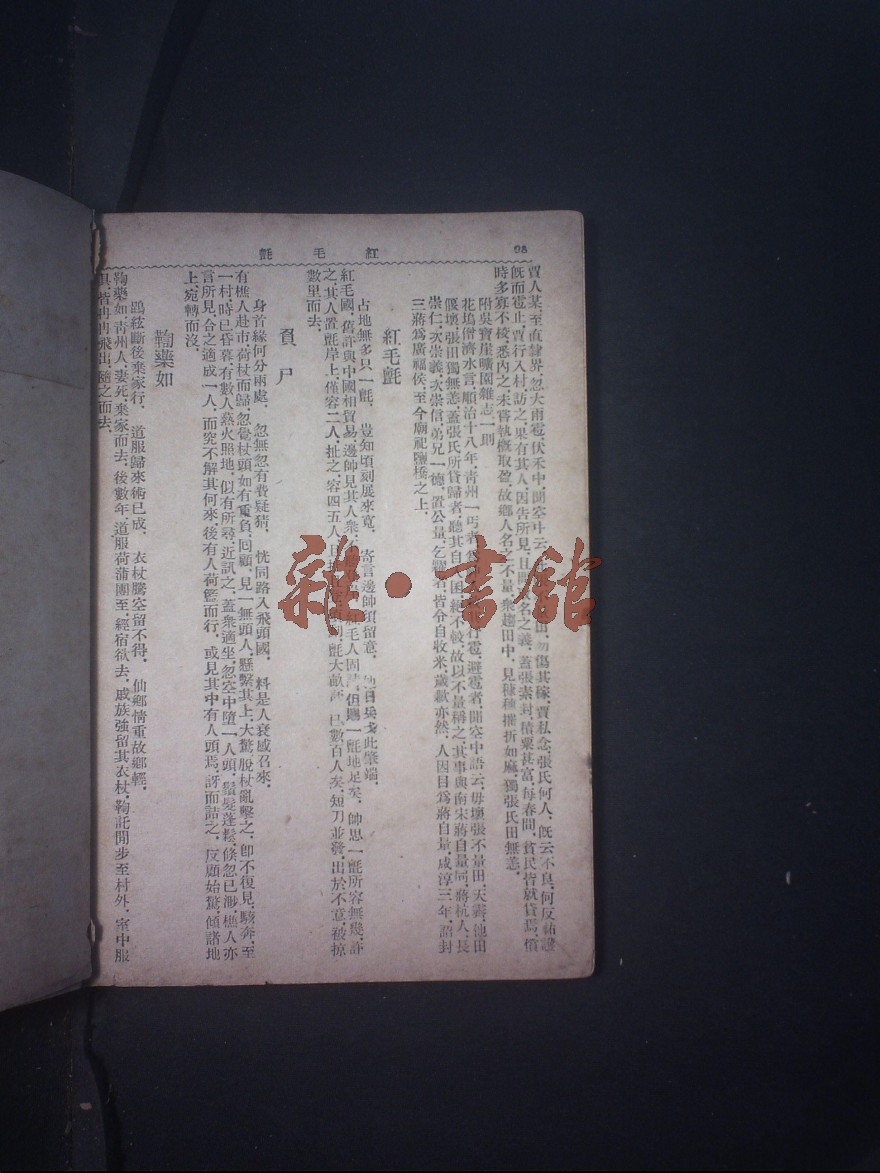 98
紅毛氈
賈人某至直隸界,忽大雨雹,伏禾中,聞空中云,田,勿傷其稼,賈私念,張氏何人,旣云不良,何反祜護
旣而雹止,賈行入村,訪之,果有其人,因告所見,且問取名之義,蓋張素封,積粟甚富,每春間,貧民皆就貸焉,償
時多寡不校,悉內之,未嘗執槪取盈,故鄉人名之不量,衆趨田中,見稼穗摧折如麻,獨張氏田無恙,
附吳寶崖曠園雜志一則
花塢僧濟水言,順治十八年,青州一丐者,行雹,避雹者,聞空中語云,毋壞張不量田,天霽,他田
偃壞,張田獨無恙,蓋張氏所貸歸者,聽其自入囷,絕不較,故以不量稱之,其事與南宋蔣自量同,蔣杭人,長
崇仁,次崇義,次崇信,弟兄一德,置公量,乞糶者,皆令自收米,歲歉亦然,人因目爲蔣自量,咸淳三年,詔封
三蔣爲廣福侯,至今廟祀鹽橋之上,
紅毛氈
占地無多只一氈, 豈知頃刻展來寬, 寄言邊帥須留意, 此肇端,
紅毛國,舊許與中國相貿易,邊帥見其人衆,紅毛人固請,但賜一氈地足矣,帥思一氈所容無幾,許
之,其人置氈岸上,僅容二人,扯之,容四五人,且扯,氈大畝許,已數百人矣,短刀並發,出於不意,被掠
數里而去,
負尸
身首緣何分兩處, 忽無忽有費疑猜, 恍同路入飛頭國, 料是人衰感召來,
有樵人赴市,荷杖而歸,忽覺杖頭如有重負,回顧,見一無頭人,懸繫其上,大驚,脫杖亂擊之,卽不復見,駭奔,至
一村,時已昏暮,有數人爇火照地,似有所尋,近訊之,蓋衆適坐,忽空中墮一人頭,鬚髮蓬鬆,倏忽已渺,樵人亦
言所見,合之適成一人,而究不解其何來,後有人荷籃而行,或見其中有人頭焉,訝而詰之,反顧始驚,傾諸地
上,宛轉而沒,
鞠藥如
鵾絃斷後棄家行, 道服歸來術已成, 衣杖騰空留不得, 仙鄉情重故鄉輕,
鞠藥如,青州人,妻死,棄家而去,後數年,道服荷蒲團至,經宿欲去,戚族強留其衣杖,鞠託閒步至村外,室中服
具,皆冉冉飛出,隨之而去,
雜·書館